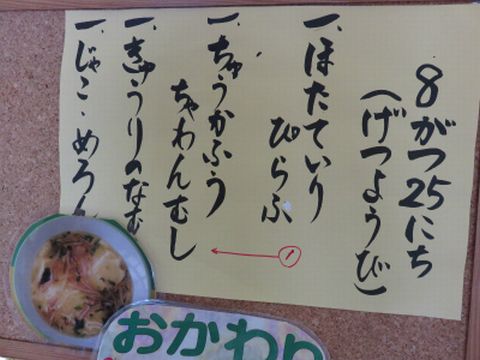 8がつ25にち
（げつようび）
一、ほたていり
ぴらふ
一、ちゅうかふう
ちゃわんむし
①
一、きゅうりのなむ
一、じゃこ・めろん
おかわり